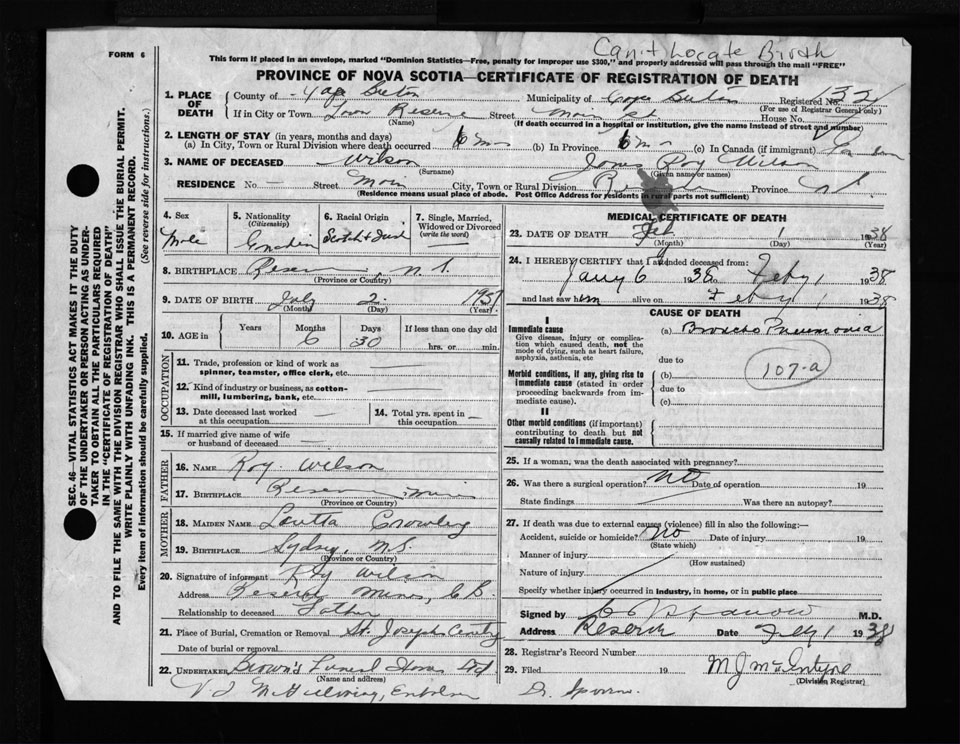 Can't Locate Birth
FORM 6
This form if placed in an envelope, marked "Dominion Statistics—Free, penalty for improper use $300," and properly addressed will pass through the mail "FREE"
PROVINCE OF NOVA SCOTIA—CERTIFICATE OF REGISTRATION OF DEATH
SEC. 46—VITAL STATISTICS ACT MAKES IT THE DUTY
OF THE UNDERTAKER OR PERSON ACTING AS UNDER-
TAKER TO OBTAIN ALL THE PARTICULARS REQUIRED
IN THE "CERTIFICATE OF REGISTRATION OF DEATH"
AND TO FILE THE SAME WITH THE DIVISION REGISTRAR WHO SHALL ISSUE THE BURIAL PERMIT.
WRITE PLAINLY WITH UNFADING INK. THIS IS A PERMANENT RECORD.
Every item of information should be carefully supplied. (See reverse side for instructions.)
1. PLACE OF DEATH County of Cape Breton Municipality of Cape Breton Registered No. 32
(For use of Registrar General only)
If in City or Town Reserve Street Main St. House No.
(Name) (If death occurred in a hospital or institution, give the name instead of street and number)
2. LENGTH OF STAY (in years, months and days)
(a) In City, Town or Rural Division where death occurred 6 mos (b) In Province 6 mo (c) In Canada (if immigrant)
3. NAME OF DECEASED Wilson James Roy Wilson
(Surname) (Given name or names)
RESIDENCE No — Street Main City, Town or Rural Division Province N.S.
(Residence means usual place of abode. Post Office Address for residents in rural parts not sufficient)
4. Sex Male
5. Nationality (Citizenship) Canadian
6. Racial Origin Scotch & Irish
7. Single, Married, Widowed or Divorced (write the word)
8. BIRTHPLACE Reserve, N.S.
(Province or Country)
9. DATE OF BIRTH July 2 1937
(Month) (Day) (Year)
10. AGE in Years Months Days If less than one day old
6 30 hrs. or min.
OCCUPATION
11. Trade, profession or kind of work as spinner, teamster, office clerk, etc.
12. Kind of industry or business, as cotton-mill, lumbering, bank, etc.
13. Date deceased last worked at this occupation —
14. Total yrs. spent in this occupation —
15. If married give name of wife or husband of deceased
FATHER
16. NAME Roy Wilson
17. BIRTHPLACE Reserve Mines
(Province or Country)
MOTHER
18. MAIDEN NAME Loretta Crowley
19. BIRTHPLACE Sydney, N.S.
(Province or Country)
20. Signature of informant Roy Wilson
Address Reserve Mines, C.B.
Relationship to deceased Father
21. Place of Burial, Cremation or Removal St. Joseph's
Date of burial or removal
22. UNDERTAKER Brown's Funeral Home Ltd
(Name and address)
MEDICAL CERTIFICATE OF DEATH
23. DATE OF DEATH Feb 1 1938
(Month) (Day) (Year)
24. I HEREBY CERTIFY that I attended deceased from:
Jany 6 1938 Feby 1 1938
and last saw him alive on Feby 1 1938
CAUSE OF DEATH
I
Immediate cause (a) Broncho Pneumonia
Give disease, injury or complication which caused death, not the mode of dying, such as heart failure, asphyxia, asthenia, etc
due to
Morbid conditions, if any, giving rise to immediate cause (stated in order proceeding backwards from immediate cause).
(b)
due to
(c)
107-a
II
Other morbid conditions (if important) contributing to death but not causally related to immediate cause.
25. If a woman, was the death associated with pregnancy?
26. Was there a surgical operation? NO Date of operation 19
State findings Was there an autopsy?
27. If death was due to external causes (violence) fill in also the following:—
Accident, suicide or homicide? No Date of injury 19
(State which)
Manner of injury
(How sustained)
Nature of injury
Specify whether injury occurred in industry, in home, or in public place
Signed by M.D.
Address Reserve Date Feby 1 1938
28. Registrar's Record Number
29. Filed 19 M J McIntyre
(Division Registrar)